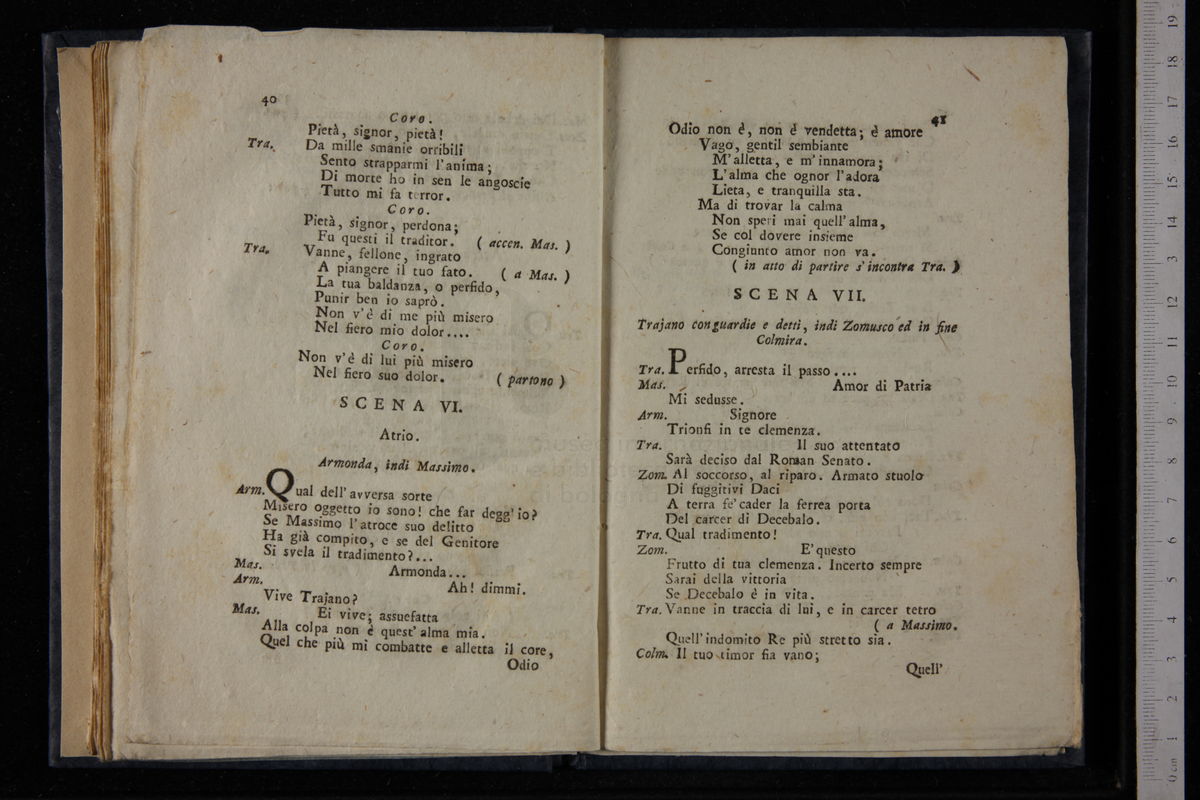 40
Coro.
Pietà, signor, pietà!
Tra. Da mille smanie orribili
Sento strapparmi l'anima;
Di morte ho in sen le angoscie
Tutto mi fa terror.
Coro.
Pietà, signor, perdona;
Fu questi il traditor. ( accen. Mas. )
Tra. Vanne, fellone, ingrato
A piangere il tuo fato. ( a Mas. )
La tua baldanza, o perfido,
Punir ben io saprò.
Non v'è di me più misero
Nel fiero mio dolor....
Coro.
Non v'è di lui più misero
Nel fiero suo dolor. ( partono )
SCENA VI.
Atrio.
Armonda, indi Massimo.
Arm. Qual dell'avversa sorte
Misero oggetto io sono! che far degg'io?
Se Massimo l'atroce suo delitto
Ha già compito, e se del Genitore
Si svela il tradimento?...
Mas. Armonda...
Arm. Ah! dimmi.
Vive Trajano?
Mas. Ei vive; assuefatta
Alla colpa non è quest'alma mia.
Quel che più mi combatte e alletta il core,
Odio
41
Odio non è, non è vendetta; è amore
Vago, gentil sembiante
M'alletta, e m'innamora;
L'alma che ognor l'adora
Lieta, e tranquilla sta.
Ma di trovar la calma
Non speri mai quell'alma,
Se col dovere insieme
Congiunto amor non va.
( in atto di partire s'incontra Tra. )
SCENA VII.
Trajano con guardie e detti, indi Zomusco ed in fine
Colmira.
Tra. Perfido, arresta il passo....
Mas. Amor di Patria
Mi sedusse.
Arm. Signore
Trionfi in te clemenza.
Tra. Il suo attentato
Sarà deciso dal Roman Senato.
Zom. Al soccorso, al riparo. Armato stuolo
Di fuggitivi Daci
A terra fe' cader la ferrea porta
Del carcer di Decebalo.
Tra. Qual tradimento!
Zom. E' questo
Frutto di tua clemenza. Incerto sempre
Sarai della vittoria
Se Decebalo è in vita.
Tra. Vanne in traccia di lui, e in carcer tetro
( a Massimo.
Quell'indomito Re più stretto sia.
Colm. Il tuo timor fia vano;
Quell'
0 cm 1 2 3 4 5 6 7 8 9 10 11 12 13 14 15 16 17 18 19